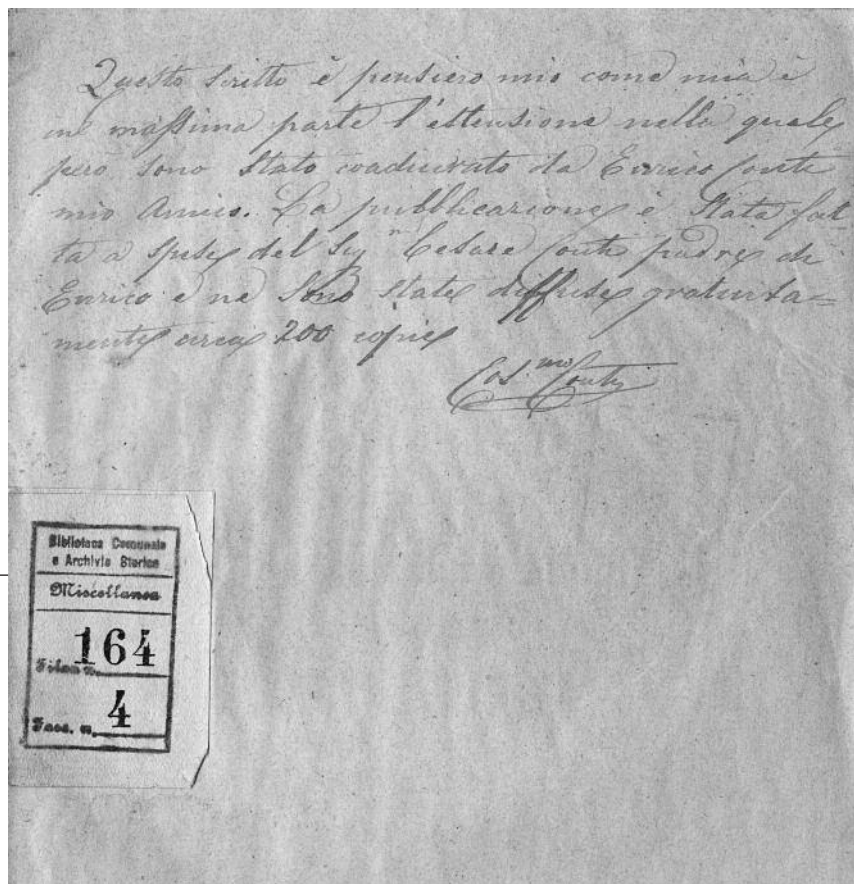 Questo scritto è pensiero mio come mia è
in massima parte l'estensione nella quale
però sono stato coadiuvato da Enrico Conti
mio Amico. La pubblicazione è stata fat-
ta a spese del Sig.r Cesare Conti padre di
Enrico e ne sono state diffuse gratuita=
mente circa 200 copie
Cos.mo Conti
Biblioteca Comunale
e Archivio Storico
Miscellanea
Filza n. 164
Fasc. n. 4